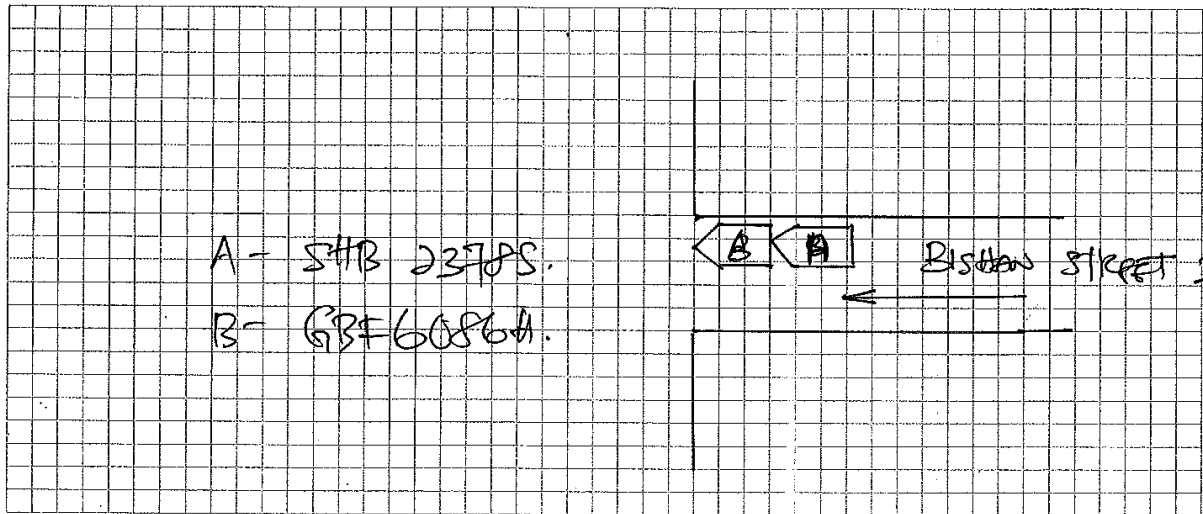 A - SHB 2378S.
B - GBF6086H.
B A
BISHAN STREET